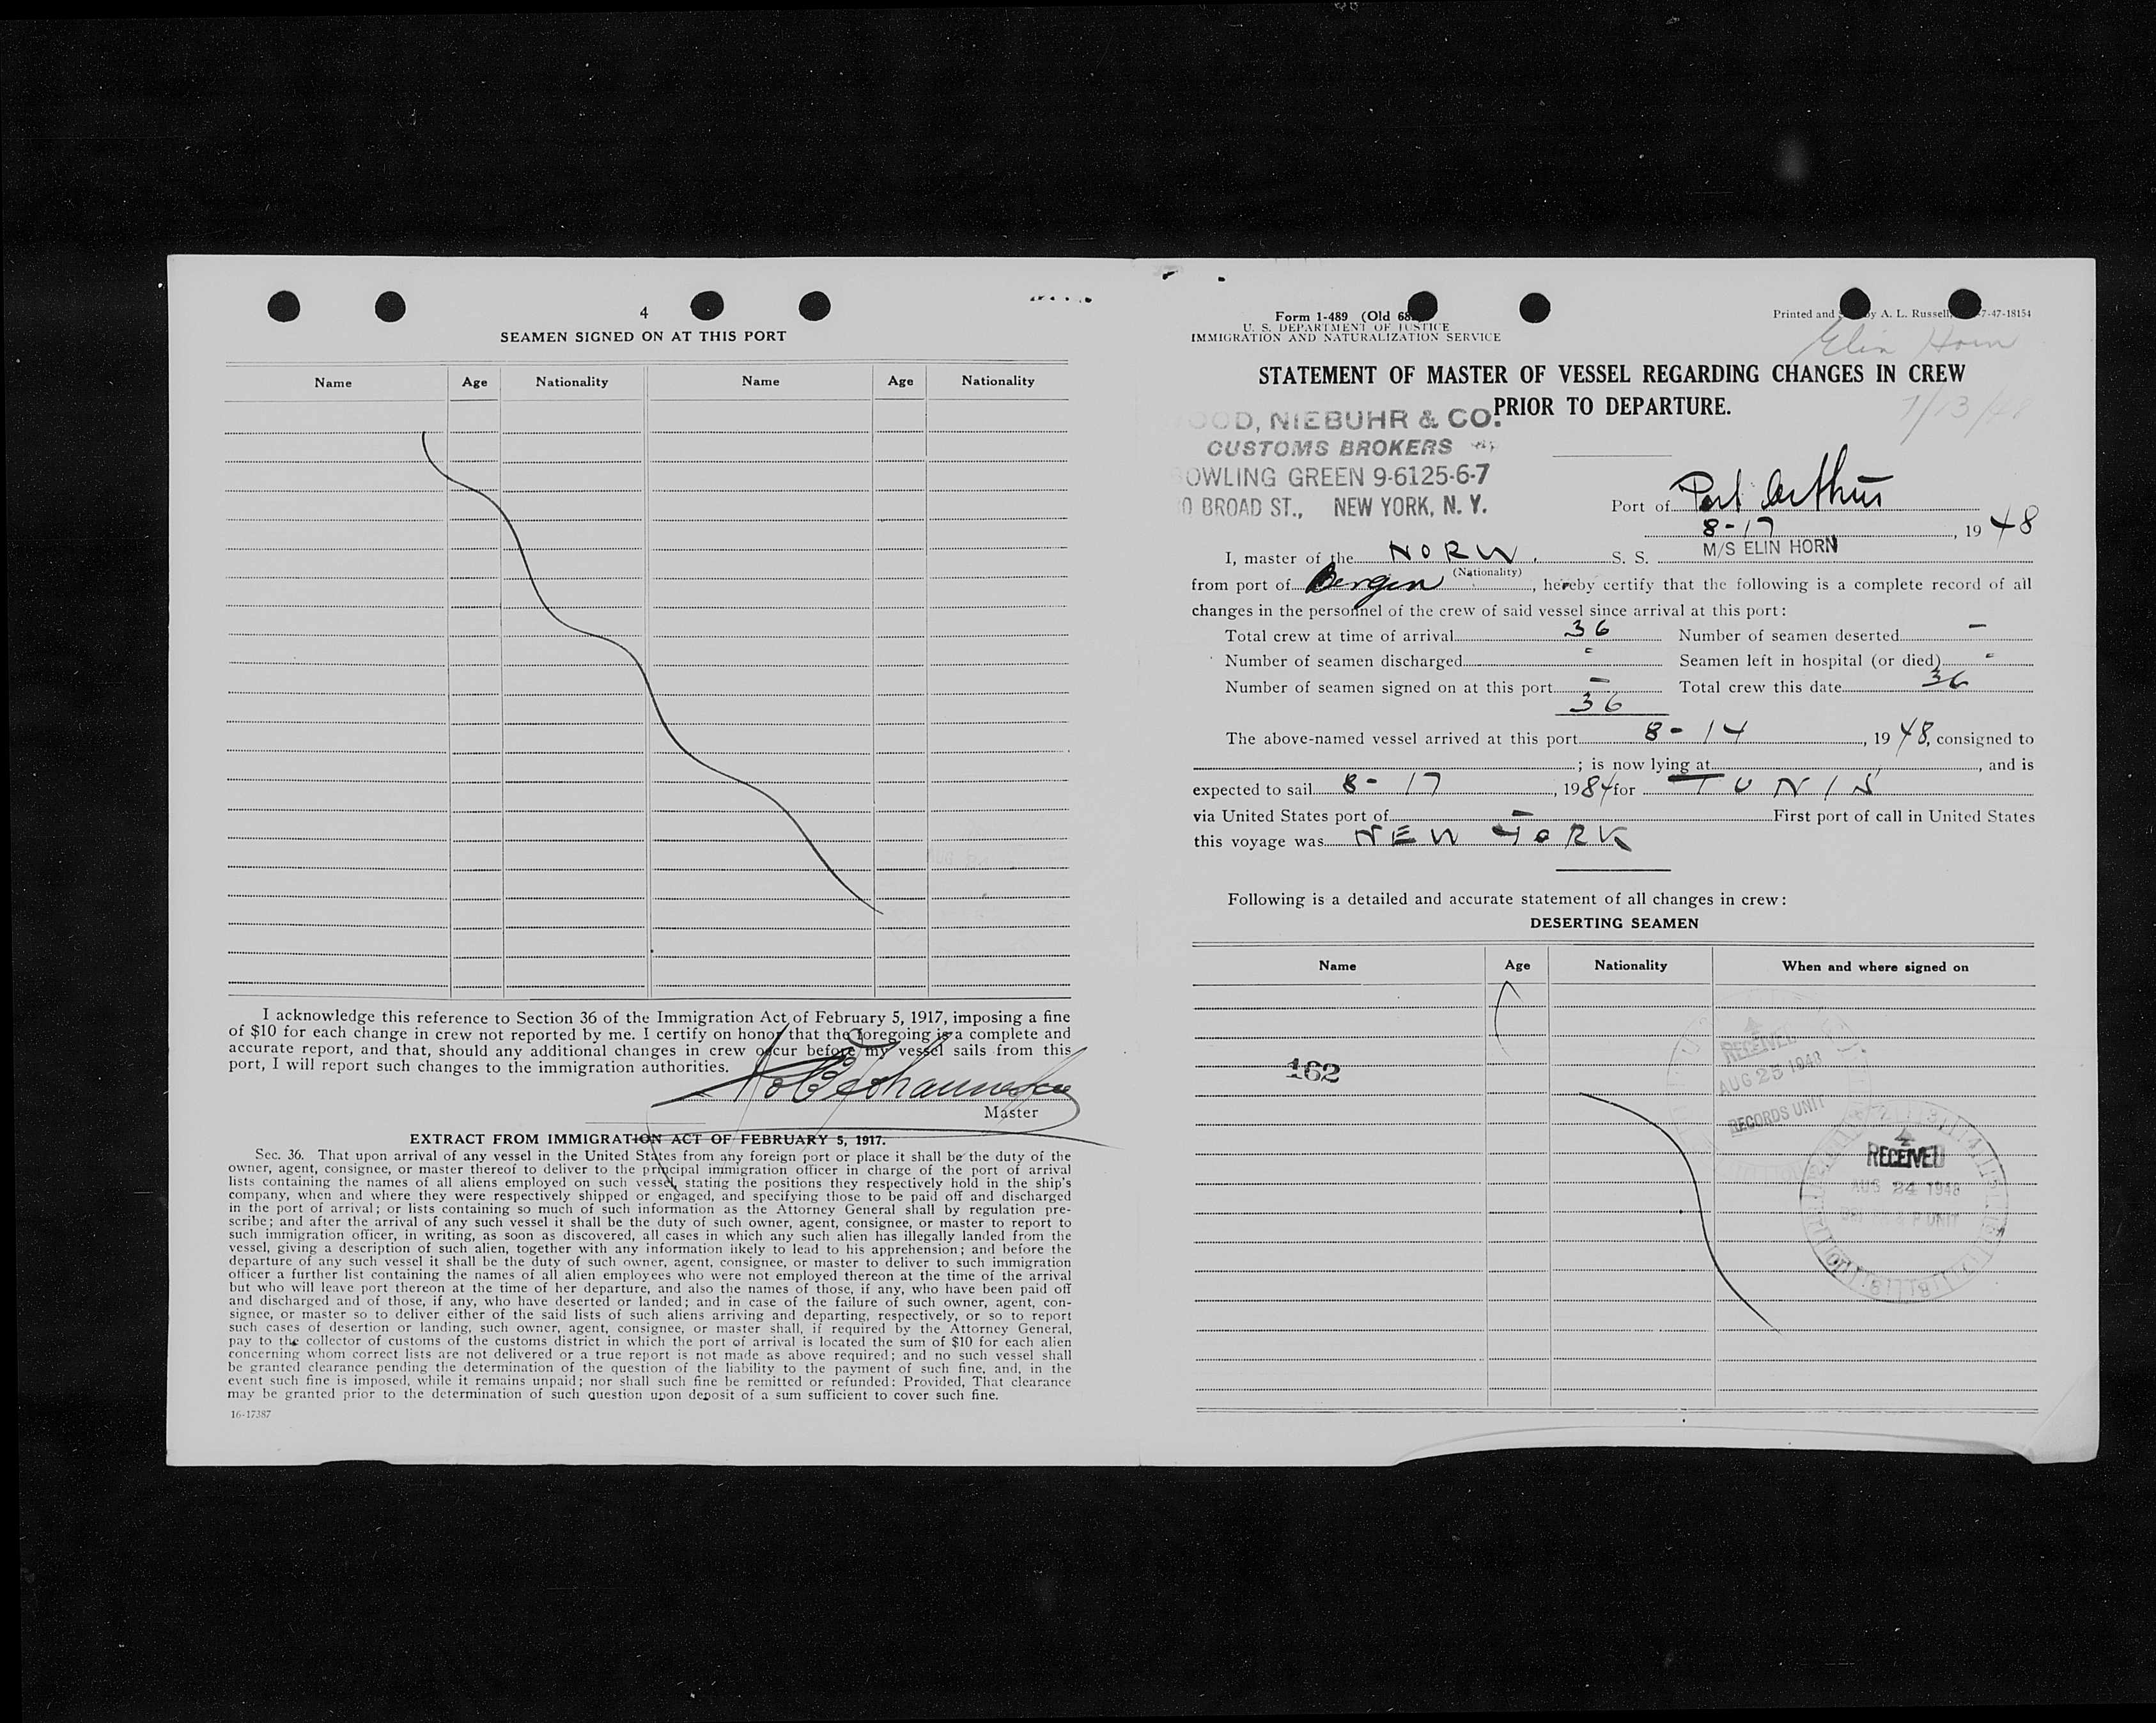 4
SEAMEN SIGNED ON AT THIS PORT
Name Age Nationality Name Age Nationality
I acknowledge this reference to Section 36 of the Immigration Act of February 5, 1917, imposing a fine
of $10 for each change in crew not reported by me. I certify on honor that the foregoing is a complete and
accurate report, and that, should any additional changes in crew occur before my vessel sails from this
port, I will report such changes to the immigration authorities.
Master
EXTRACT FROM IMMIGRATION ACT OF FEBRUARY 5, 1917.
Sec. 36. That upon arrival of any vessel in the United States from any foreign port or place it shall be the duty of the
owner, agent, consignee, or master thereof to deliver to the principal immigration officer in charge of the port of arrival
lists containing the names of all aliens employed on such vessel, stating the positions they respectively hold in the ship's
company, when and where they were respectively shipped or engaged, and specifying those to be paid off and discharged
in the port of arrival; or lists containing so much of such information as the Attorney General shall by regulation pre-
scribe; and after the arrival of any such vessel it shall be the duty of such owner, agent, consignee, or master to report to
such immigration officer, in writing, as soon as discovered, all cases in which any such alien has illegally landed from the
vessel, giving a description of such alien, together with any information likely to lead to his apprehension; and before the
departure of any such vessel it shall be the duty of such owner, agent, consignee, or master to deliver to such immigration
officer a further list containing the names of all alien employees who were not employed thereon at the time of the arrival
but who will leave port thereon at the time of her departure, and also the names of those, if any, who have been paid off
and discharged and of those, if any, who have deserted or landed; and in case of the failure of such owner, agent, con-
signee, or master so to deliver either of the said lists of such aliens arriving and departing, respectively, or so to report
such cases of desertion or landing, such owner, agent, consignee, or master shall, if required by the Attorney General,
pay to the collector of customs of the customs district in which the port of arrival is located the sum of $10 for each alien
concerning whom correct lists are not delivered or a true report is not made as above required; and no such vessel shall
be granted clearance pending the determination of the question of the liability to the payment of such fine, and, in the
event such fine is imposed, while it remains unpaid; nor shall such fine be remitted or refunded: Provided, That clearance
may be granted prior to the determination of such question upon deposit of a sum sufficient to cover such fine.
16-17387
Form 1-489 (Old 68
U. S. DEPARTMENT OF JUSTICE
IMMIGRATION AND NATURALIZATION SERVICE
Printed and by A. L. Russell, 7-47-18154
Elin Horn
STATEMENT OF MASTER OF VESSEL REGARDING CHANGES IN CREW
PRIOR TO DEPARTURE.
7/13/48
OOD, NIEBUHR & CO.
CUSTOMS BROKERS
OWLING GREEN 9-6125-6-7
0 BROAD ST., NEW YORK, N. Y.
Port of Port Arthur
8-17, 1948
I, master of the NORW. S. S. M/S ELIN HORN
(Nationality)
from port of Bergen, hereby certify that the following is a complete record of all
changes in the personnel of the crew of said vessel since arrival at this port:
Total crew at time of arrival 36 Number of seamen deserted -
Number of seamen discharged - Seamen left in hospital (or died) -
Number of seamen signed on at this port - Total crew this date 36
36
The above-named vessel arrived at this port 8-14, 1948, consigned to
; is now lying at , and is
expected to sail 8-17, 1984 for TUNIS
via United States port of - First port of call in United States
this voyage was NEW YORK
Following is a detailed and accurate statement of all changes in crew:
DESERTING SEAMEN
Name Age Nationality When and where signed on
162
RECEIVED
AUG 25 1948
RECORDS UNIT
RECEIVED
AUG 24 1948